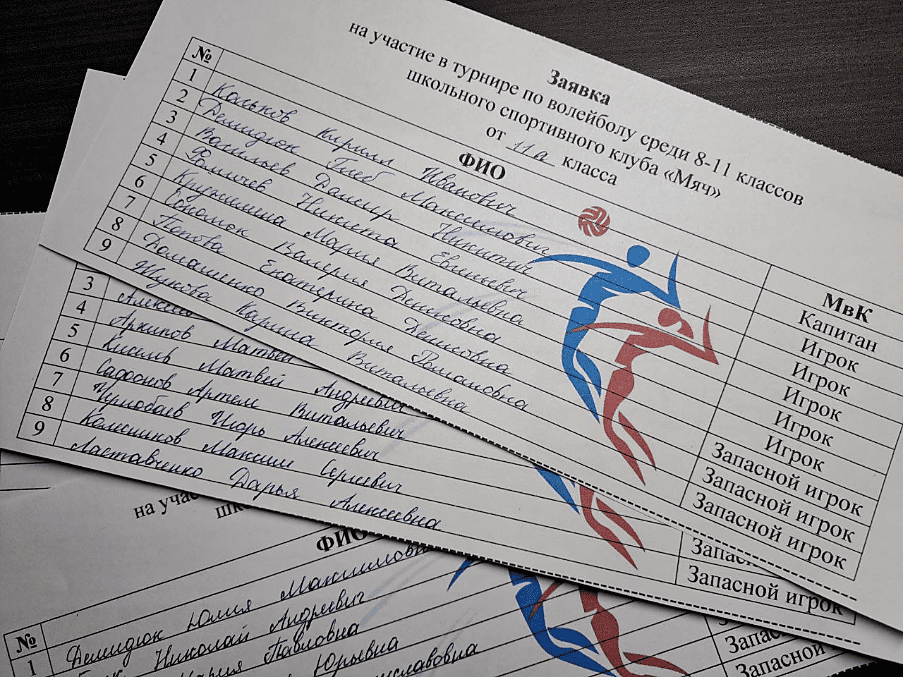 Заявка
на участие в турнире по волейболу среди 8-11 классов
школьного спортивного клуба «Мяч»
от 11а класса
№ ФИО МвК
1 Кольков Кирилл Иванович Капитан
2 Демидюк Глеб Максимович Игрок
3 Васильев Дамир Никитич Игрок
4 Фомичев Никита Евгеневич Игрок
5 Крупинина Мария Витальевна Игрок
6 Валерия Денисовна Игрок
7 Попова Екатерина Денисовна Запасной игрок
8 Домашенко Виктория Романовна Запасной игрок
9 Жукова Карина Витальевна Запасной игрок
3
4 Архипов Матвей
5 Кисилв Матвий Андреевич
6 Сафонов Артем Витальевич
7 Чурнобаев Игорь Алексеевич
8 Колесников Максим Сергеевич Запас
9 Лоставченко Дарья Алексеевна Запасной игрок
на учас
шк
№ ФИО
1 Демидюк Юлия Максимовна
Николай Андреевич
Мария Павловна
Юрьевна
славовна
Запасно
Запасной